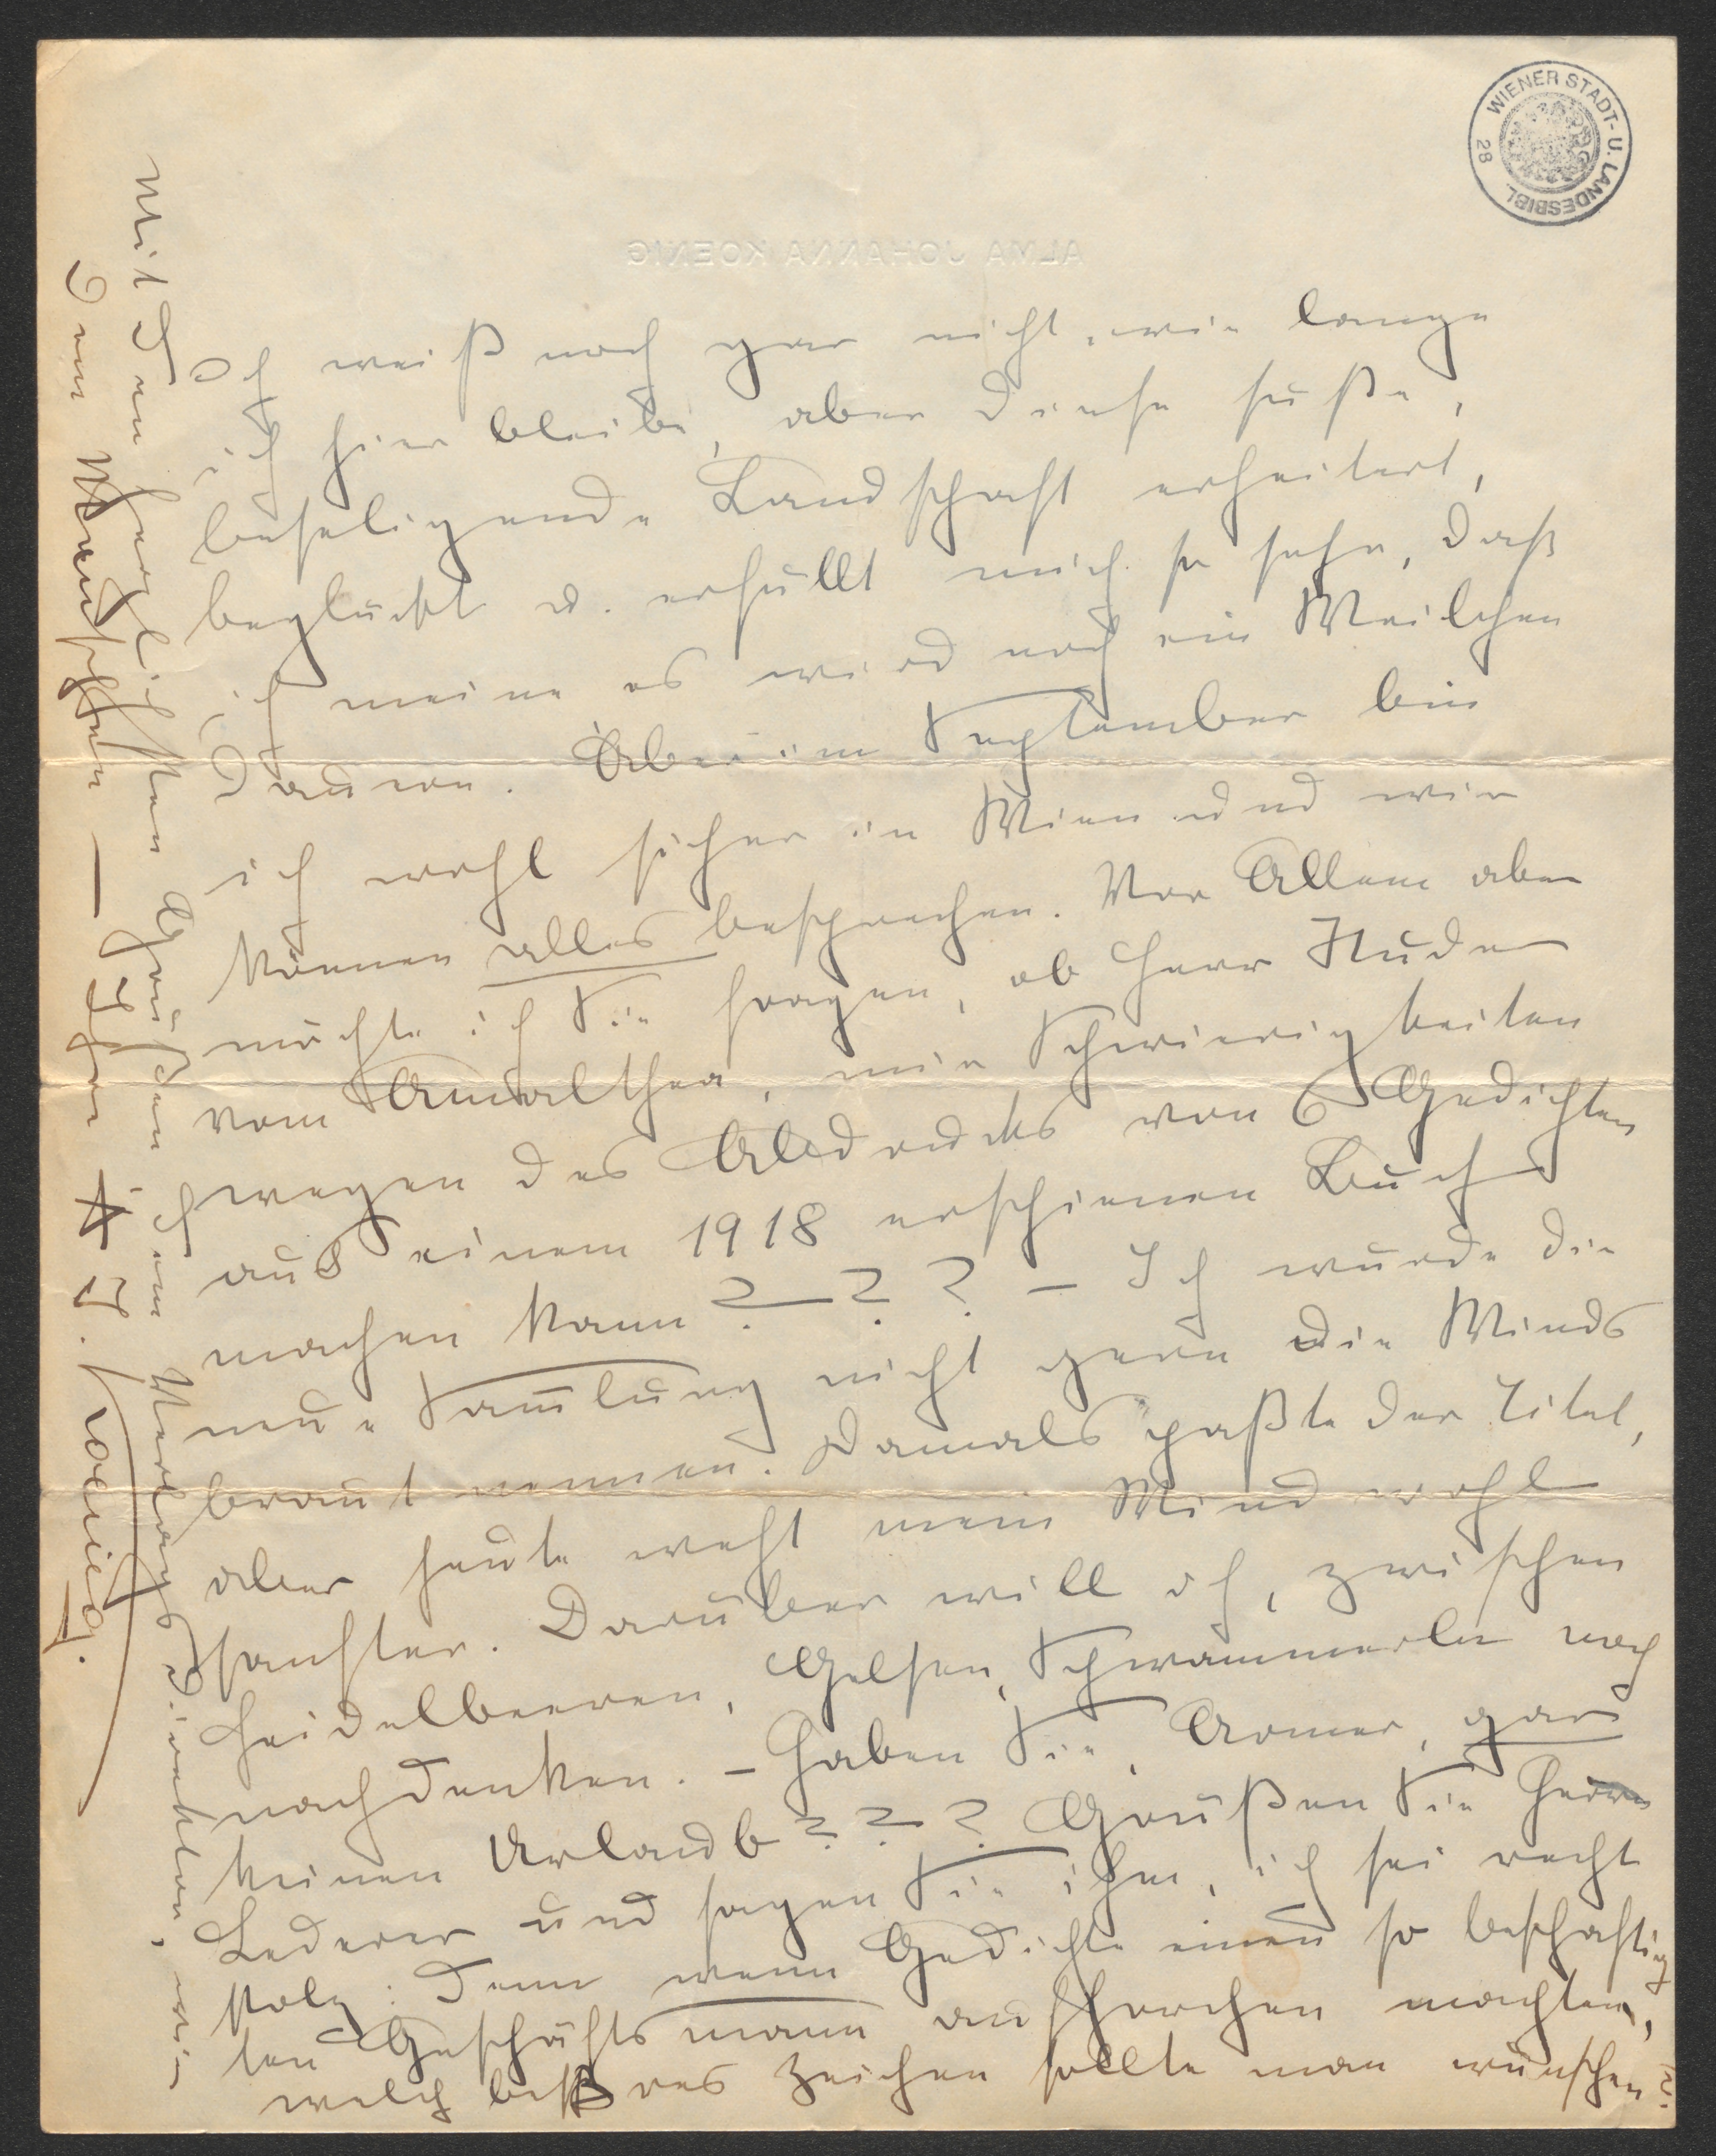 WIENER STADT- U. LANDESBIBL.
28
ALMA JOHANNA KOENIG
Ich weiß noch gar nicht, wie lange
ich hier bleibe, aber diese süße,
beseligende Landschaft erheitert,
beglückt u. erfüllt mich so sehr, daß
ich meine es wird noch ein Weilchen
dauern. Aber im September bin
ich wohl sicher in Wien und wir
können alles besprechen. Vor Allem aber
möchte ich Sie fragen, ob Herr Studer
vom Amalthea, mir Schwierigkeiten
wegen des Abdrucks von 6 Gedichten
aus einem 1918 erschienen Buch
machen kann ? ? ? – Ich würde die
neue Sam̄lung nicht gern die Winds
braut nennen. Damals paßte der Titel,
aber heute weht mein Wind wohl
sanfter. Darüber will ich, zwischen
Heidelbeeren, Gelsen, Schwammerln noch
nachdenken. – Haben Sie, Armer, gar
keinen Urlaub ? ? ? Grüßen Sie Herrn
Lederer und sagen Sie ihm, ich sei recht
stolz: denn wenn Gedichte einen so beschäftig
ten Geschäftsmann aufhorchen machten,
welch beßres Zeichen sollte man wünschen?
Mit den herzlichsten Grüßen Ihrem Verlagsdirektor, wie
dem Menschen — Ihre A. J. Koenig.